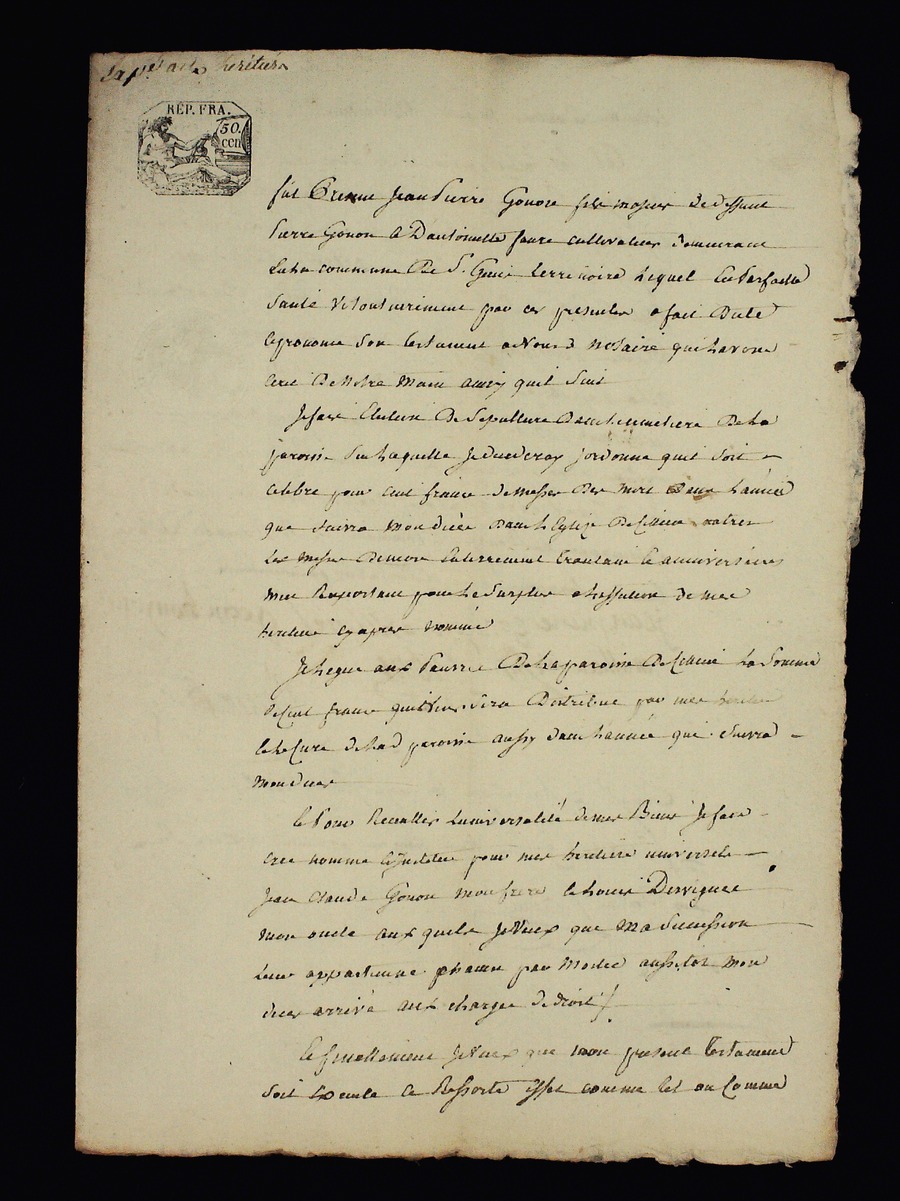 héritiers
RÉP. FRA.
50.
cen
fut présent Jean Pierre Gonon fils majeur de deffunt
Pierre Gonon & D'antoinette faure cultivateur demeurant
En la commune De St. Genis terre noire Lequel En parfaitte
Santé Volontairement par ces presentes a fait Dicté
& prononcé Son testament a Nous notaire qui Lavons
écrit De Notre Main ainsy quil Suit
Je fais Election De Sepulture Dans le cimetiere De La
paroisse Sur Laquelle Je decederay Jordonne quil Soit
Celebré pour cent francs de messes Des morts Dans Lannée
que Suivra Mon décés Dans LEglise De outres
Les Messes De mon enterrement trentain & anniversaires
Men Raportant pour Le Surplus a Laffection de mes
heritiers cy apres nommés
Je Legue aux Pauvres De La paroisse De La Somme
De Cent francs qui Leur Sera Distribué par mes heritiers
& Le Curé de Lad paroisse aussy dans Lannée qui Suivra
Mon decés
& Pour Recueillir Luniversalité de mes Biens Je fais
Crée nomme & Institue pour mes heritiers universels
Jean Claude Gonon mon frere & Louis Dervieux
mon oncle aux quels Je Veux que Ma Succession
Leur appartienne chacun par Moitié aussitot mon
décés arrivé aux charges de droit
& finallement Je Veux que mon present testament
Soit Executé & Ressorte effet comme tel ou Comme